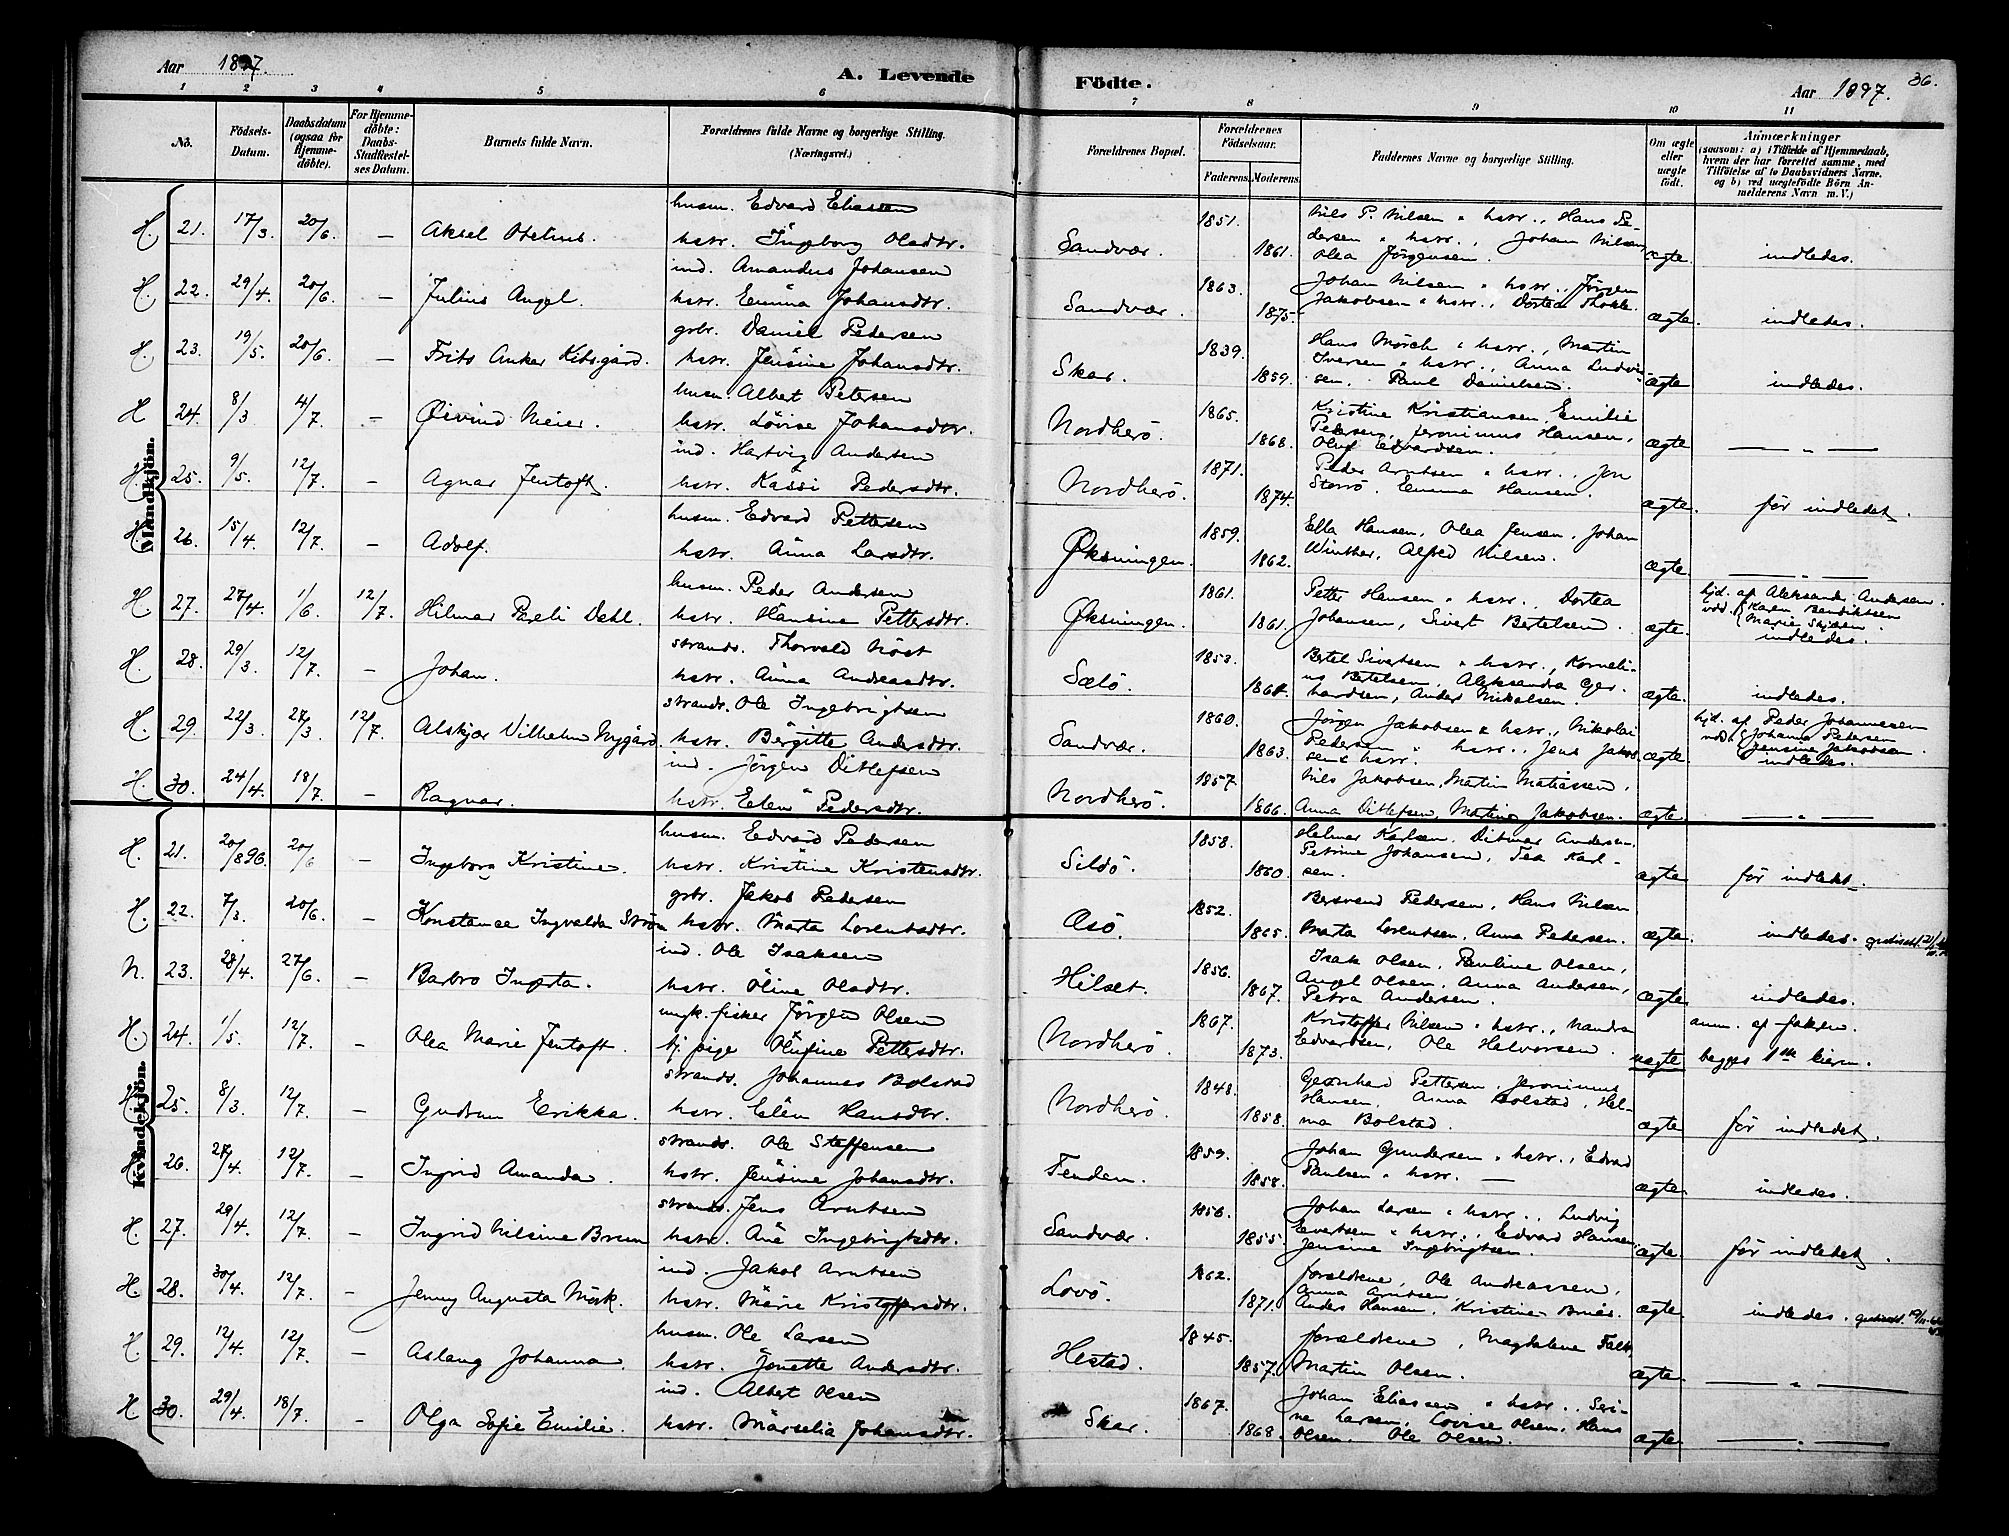 Aar 1897.
A. Levende Födte.
Aar 1897.
36.
1 2 3 4 5 6 7 8 9 10 11
No.
Födsels-Datum.
Daabsdatum (ogsaa for Hjemmedöbte).
For Hjemmedöbte: Daabs-Stadfæstelses Datum.
Barnets fulde Navn.
Forældrenes fulde Navne og borgerlige Stilling. (Næringsvei.)
Forældrenes Bopæl.
Forældrenes Födselsaar.
Faderens. Moderens.
Faddernes Navne og borgerlige Stilling.
Om ægte eller uægte födt.
Anmærkninger
(saasom: a) i Tilfælde af Hjemmedaab, hvem der har forrettet samme, med Tilföielse af to Daabsvidners Navne. og b) ved uægtefödte Börn Anmelderens Navn m. V.)
Mandkjön.
H. 21. 17/3 20/6. — Aksel husm. Edvard Eliassen hstr. Ingeborg Olsdtr. Sandvær. 1851. 1861. Nils P. Nilsen & hstr., Hans Pedersen & hstr., Johan Nilsen, Olea Jørgensen. ægte. indledes.
H. 22. 29/4. 20/6. — Julius Angel. ind. Amandus Johansen hstr. Emma Johansdtr. Sandvær. 1863. 1875. Johan Nilsen & hstr., Jørgen Jakobsen & hstr., Dortea ægte. indledes.
H. 23. 19/5. 20/6. — Frits Anker gbr. Daniel Pedersen hstr. Jensine Johansdtr. Skar. 1839. 1859. Hans Mörch & hstr., Martin Iversen & hstr., Anna Ludvigsen. Paul Danielsen. ægte indledes.
H 24. 8/3 4/7. — Øivind Meier. husm. Albert Petersen hstr. Lovise Johansdtr. Nordherö. 1865. 1868. Kristine Kristiansen, Emilie Pedersen, Jeronimus Hansen, Oluf Edvardsen. ægte — „ —
H. 25. 9/5. 12/7. — Agnar Jentoft. ind. Hartvig Andersen hstr. Kassi Pedersdtr. Nordherö. 1871. 1874. Peder Arntsen & hstr., Jon Storrö. Emma Hansen. ægte. för indledet.
H. 26. 15/4. 12/7. — Adolf. husm. Edvard Pettersen hstr. Anna Larsdtr. Øksningen. 1859. 1862. Ella Hansen, Olea Jensen, Johan Winther, Alfred Nilsen. ægte. — „ —
H. 27. 27/4. 1/6. 12/7. Hilmar Pareli Dahl. husm. Peder Andersen hstr. Hansine Pettersdtr. Øksningen. 1861. 1861. Petter Hansen & hstr., Dortea Johansen, Sivert Bertelsen. ægte. hjd. af Aleksander Andersen. vdd. Karen Bendiktsen Marie indledes.
H. 28. 29/3. 12/7. — Johan. strands. Thorvald Nöst hstr. Anna Andreasdtr. Sælö. 1853. 1864. Bertel Sivertsen & hstr., Kornelius Bertelsen, Aleksandra Gerhardsen, Ander Nikolaisen. ægte. indledes.
H. 29. 22/3. 27/3. 12/7. Alskjær Vilhelm Nygård. strands. Ole Ingebrigtsen hstr. Bergitte Andersdtr. Sandvær. 1860. 1863. Jörgen Jakobsen & hstr., Nikolai Pedersen & hstr., Jens Jakobsen & hstr. ægte. hjd. af Peder Johannesen vdd. Johanna Petersen Jensine Jakobsen. indledes.
H. 30. 24/4. 18/7. — Ragnar. ind. Jörgen Ditlefsen hstr. Elen Pedersdtr. Nordherö. 1857. 1866. Nils Jakobsen, Martin Matiassen, Anna Ditlefsen, Martine Jakobsen. ægte. — „ —
Kvindekjön.
H. 21. 20/8 96. 20/6 — Ingeborg Kristine. husm. Edvard Pedersen hstr. Kristine Kristensdtr. Sildö. 1858. 1860. Helmer Karlsen, Ditmar Andersen, Petrine Johansen, Tea Karlsen. ægte för indledt.
H. 22. 7/3. 20/6. — Konstance Ingvalda Ström gbr. Jakob Pedersen hstr. Marta Lorentsdtr. Asö. 1852. 1865. Bersvend Pedersen, Hans Nilsen Marta Lorentsen, Anna Pedersen. ægte. indledes.
N. 23. 28/4. 27/6 — Barbro Ingerta. ind. Ole Isaksen hstr. Oline Olsdtr. Hilset. 1856. 1867. Isak Olsen, Pauline Olsen, Angel Olsen, Anna Andersen, Petra Andersen. ægte indledes.
H. 24. 1/5. 12/7. — Olea Marie Jentoft. ungk. fisker Jörgen Olsen tj. pige Olufine Pettersdtr. Nordherö. 1867. 1873. Kristoffer Nilsen & hstr., Nanda Edvardsen, Ole Halvorsen. uægte anm. af faderen. begges 1ste leierm.
H. 25. 8/3. 12/7. — Gudrun Erikka. strands. Johannes Bolstad hstr. Elen Hansdtr. Nordherö. 1848. 1858. Gerhard Pettersen, Jeronimus Hansen, Anna Bolstad, Helma Bolstad. ægte för indledet.
H. 26. 27/4. 12/7. — Ingrid Amanda. strands. Ole Steffensen hstr. Jensine Johansdtr. Fenden. 1859. 1858. Johan Gundersen & hstr., Edvard Paulsen & hstr. — ægte. indledes.
H. 27. 29/4. 12/7. — Ingrid Nilsine Bruun strands. Jens Arntsen hstr. Ane Ingebrigtsdtr. Sandvær. 1856. 1855. Johan Larsen & hstr., Ludvig Evertsen & hstr., Edvard Hansen, Jensine Ingebrigtsen. ægte. för indledet.
H. 28. 30/4. 12/7. — Jenny Augusta Mörk. ind. Jakob Arntsen hstr. Marie Kristoffersdtr. Lovö. 1862. 1871. forældrene, Ole Andreassen, Anna Arntsen, Anders Hansen, Kristine ægte. indledes.
H 29. 12/4. 12/7. — Aslaug Johanna. husm. Ole Larsen hstr. Jonette Andersdtr. Hestad. 1845. 1857. forældrene, Magdalene Falk, Martin Olsen. ægte. — „ —
H 30. 29/4. 18/7. — Olga Sofie Emilie. ind. Albert Olsen hstr. Marselia Johansdtr. Skar. 1867. 1868. Johan Eliassen & hstr., Serine Larsen, Lovise Olsen, Hans Olsen. Ole Olsen. ægte. — „ —